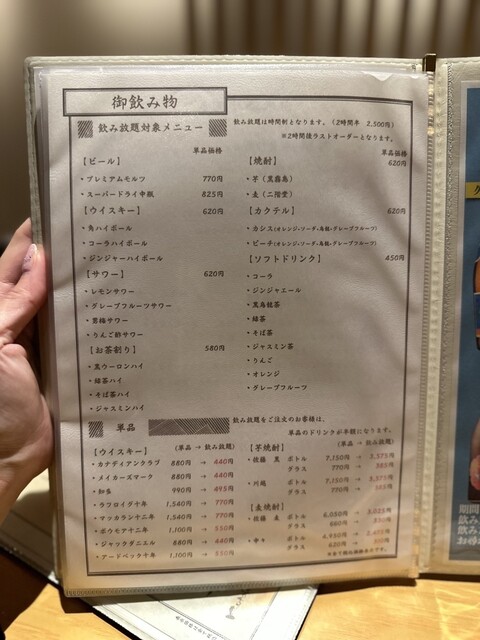 御飲み物
飲み放題対象メニュー
飲み放題は時間制となります。(2時間半 2,500円)
※2時間後ラストオーダーとなります。
単品価格
【ビール】
・プレミアムモルツ 770円
・スーパードライ中瓶 825円
【ウイスキー】 620円
・角ハイボール
・コーラハイボール
・ジンジャーハイボール
【サワー】 620円
・レモンサワー
・グレープフルーツサワー
・男梅サワー
・りんご酢サワー
【お茶割り】 580円
・黒ウーロンハイ
・緑茶ハイ
・そば茶ハイ
・ジャスミンハイ
単品価格
【焼酎】 620円
・芋(黒霧島)
・麦(二階堂)
【カクテル】 620円
・カシス(オレンジ・ソーダ・烏龍・グレープフルーツ)
・ピーチ(オレンジ・ソーダ・烏龍・グレープフルーツ)
【ソフトドリンク】 450円
・コーラ
・ジンジャエール
・黒烏龍茶
・緑茶
・そば茶
・ジャスミン茶
・りんご
・オレンジ
・グレープフルーツ
単品
飲み放題をご注文のお客様は、
単品のドリンクが半額になります。
【ウイスキー】 (単品 → 飲み放題)
・カナディアンクラブ 880円 → 440円
・メイカーズマーク 880円 → 440円
・知多 990円 → 495円
・ラフロイグ十年 1,540円 → 770円
・マッカラン十二年 1,540円 → 770円
・ボウモア十二年 1,100円 → 550円
・ジャックダニエル 880円 → 440円
・アードベック十年 1,100円 → 550円
【芋焼酎】 (単品 → 飲み放題)
・佐藤 黒 ボトル 7,150円 → 3,575円
グラス 770円 → 385円
・川越 ボトル 7,150円 → 3,575円
グラス 770円 → 385円
【麦焼酎】
・佐藤 麦 ボトル 6,050円 → 3,025円
グラス 660円 → 330円
・中々 ボトル 4,950円 → 2,475円
グラス 620円 →
期間
飲み
飲み
お得